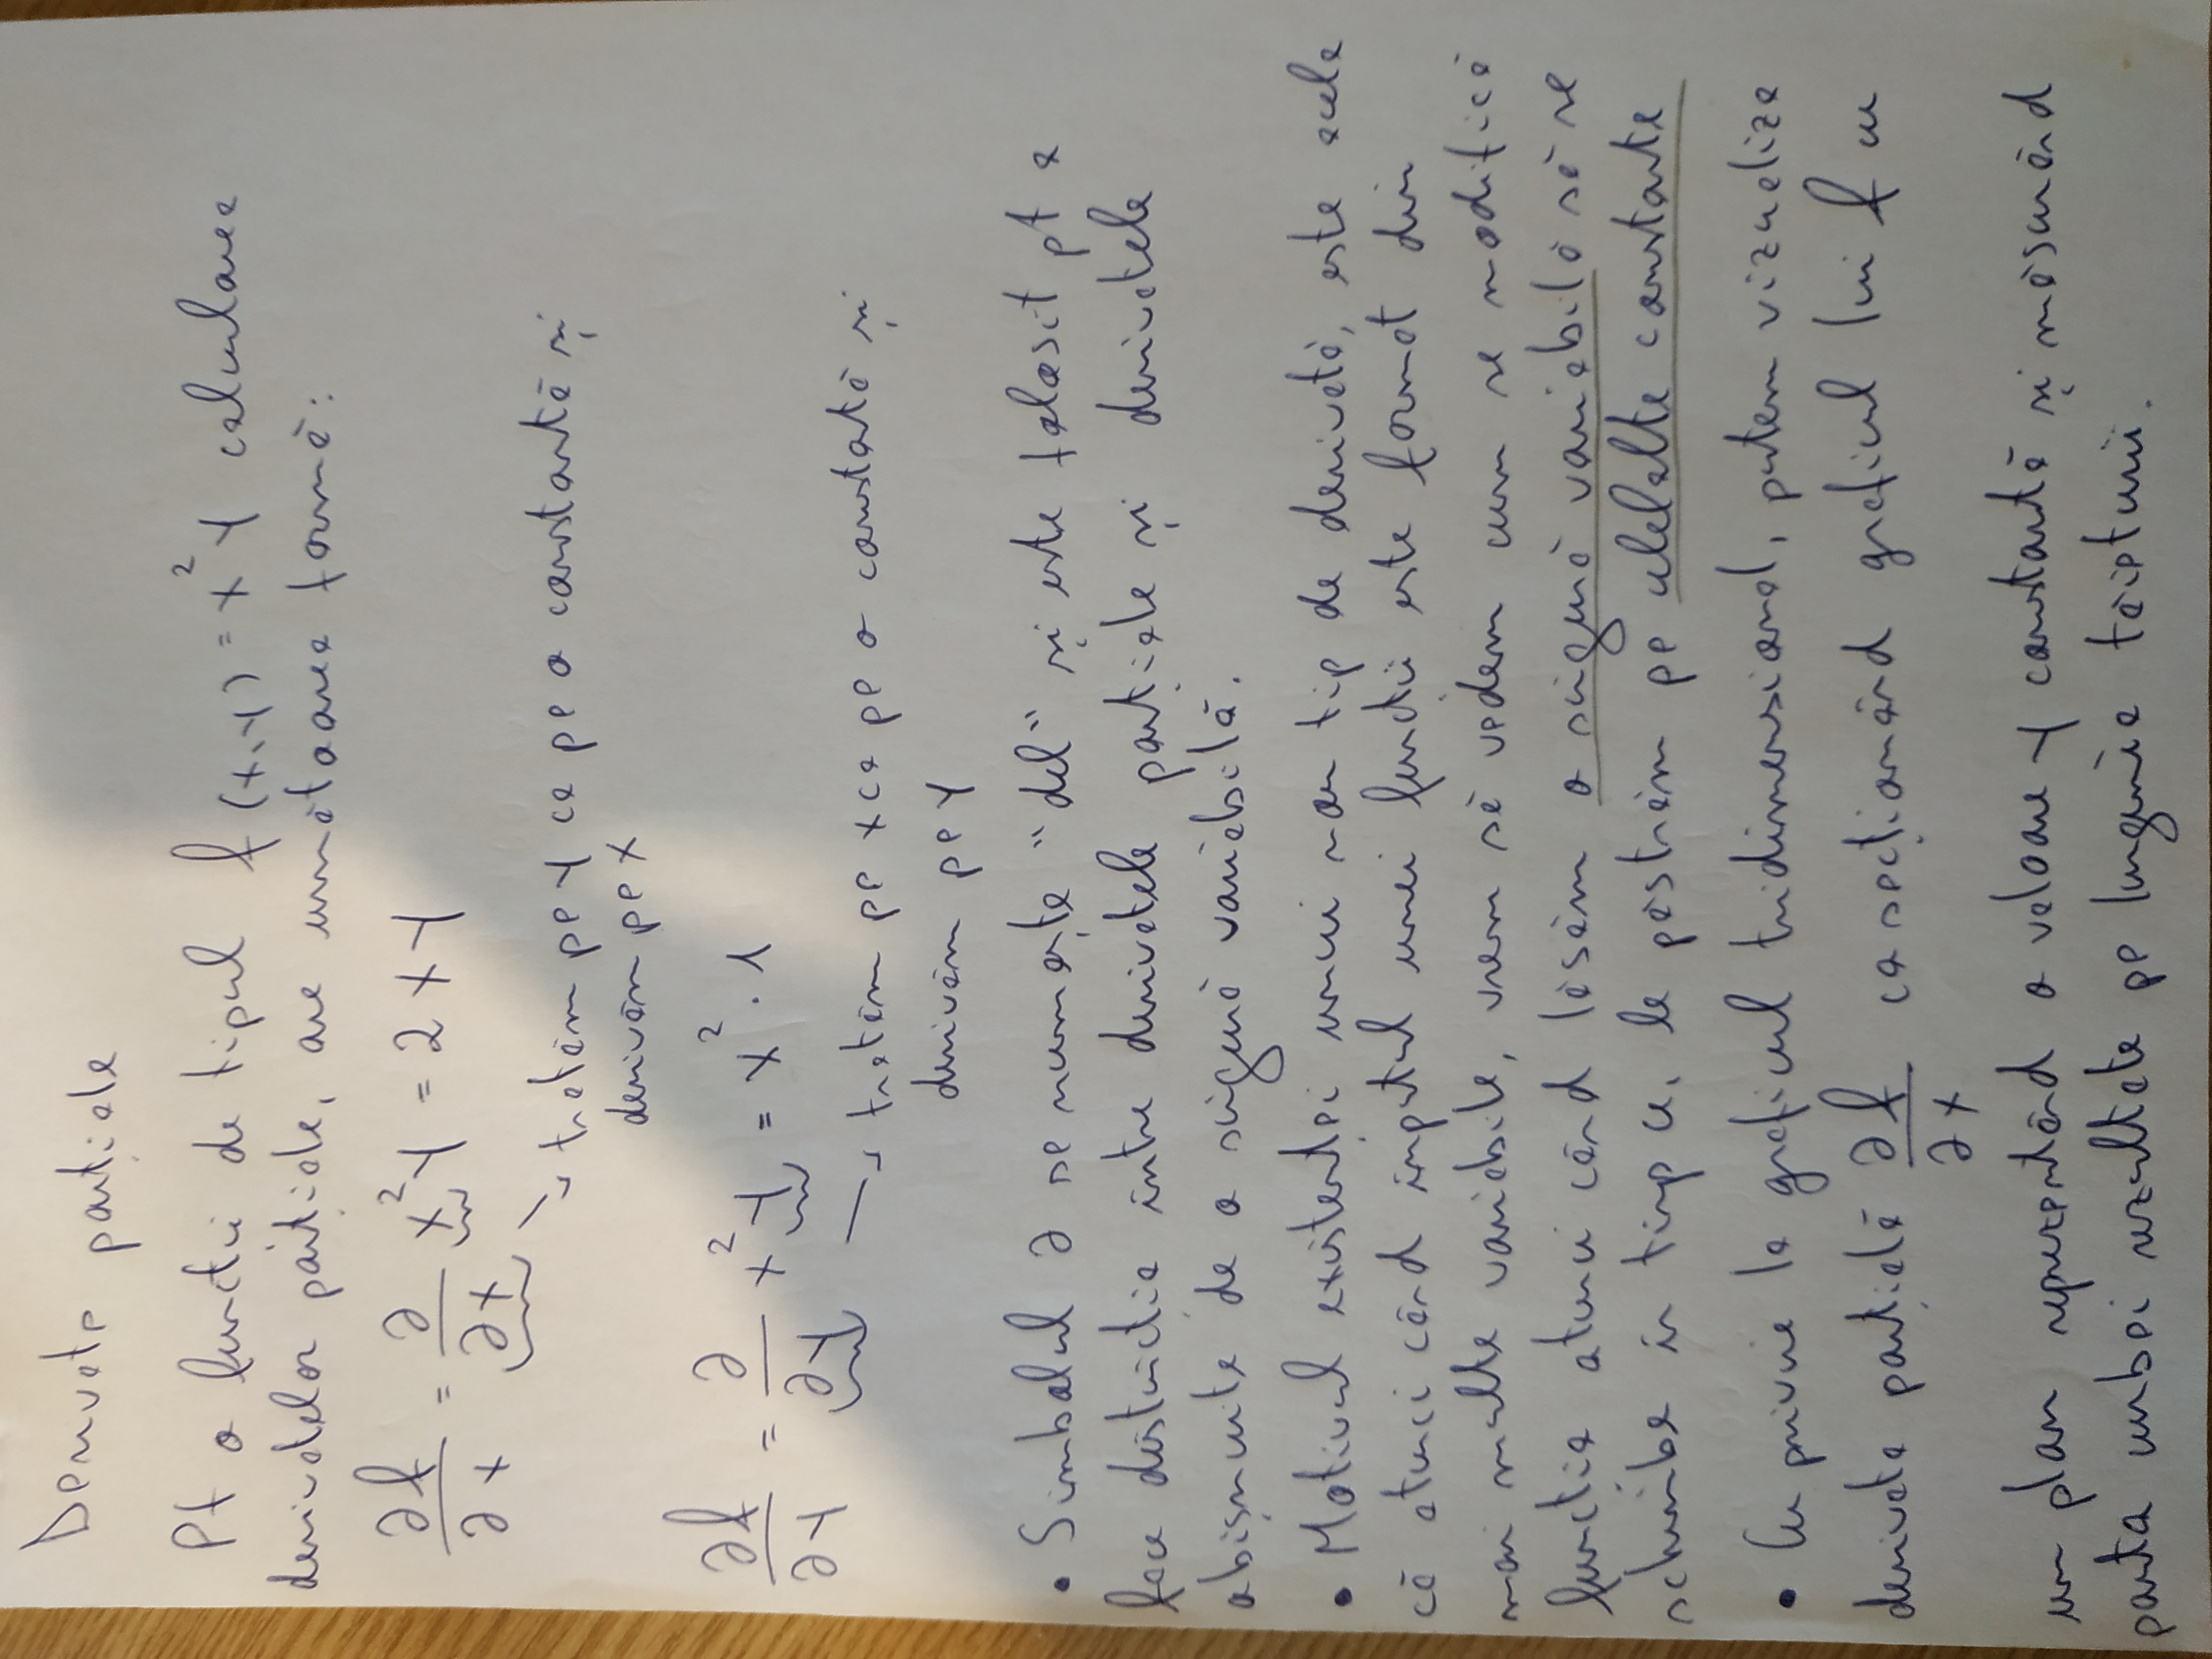 Derivate parțiale
Pt o funcție de tipul f(x,y) = x²y calcularea
derivatelor parțiale, are următoarea formă:
∂f/∂x = ∂/∂x x²y = 2xy
→ tratăm pe y ca pe o constantă și
derivăm pe x
∂f/∂y = ∂/∂y x²y = x² · 1
→ tratăm pe x ca pe o constată și
derivăm pe y
• Simbolul ∂ se numește "del" și este folosit pt a
face distincția între derivatele parțiale și derivatele
obișnuite de o singură variabilă.
• Motivul existenței unui nou tip de derivată, este acela
că atunci când inputul unei funcții este format din
mai multe variabile, vrem să vedem cum se modifică
funcția atunci când lăsăm o singură variabilă să se
schimbe în timp ce, le păstrăm pe celelalte constante
• Cu privire la graficul tridimensional, putem vizualiza
derivata parțială ∂f/∂x ca secționând graficul lui f cu
un plan reprezentând o valoare y constantă și măsurând
panta curbei rezultate pe lungimea tăieturii.